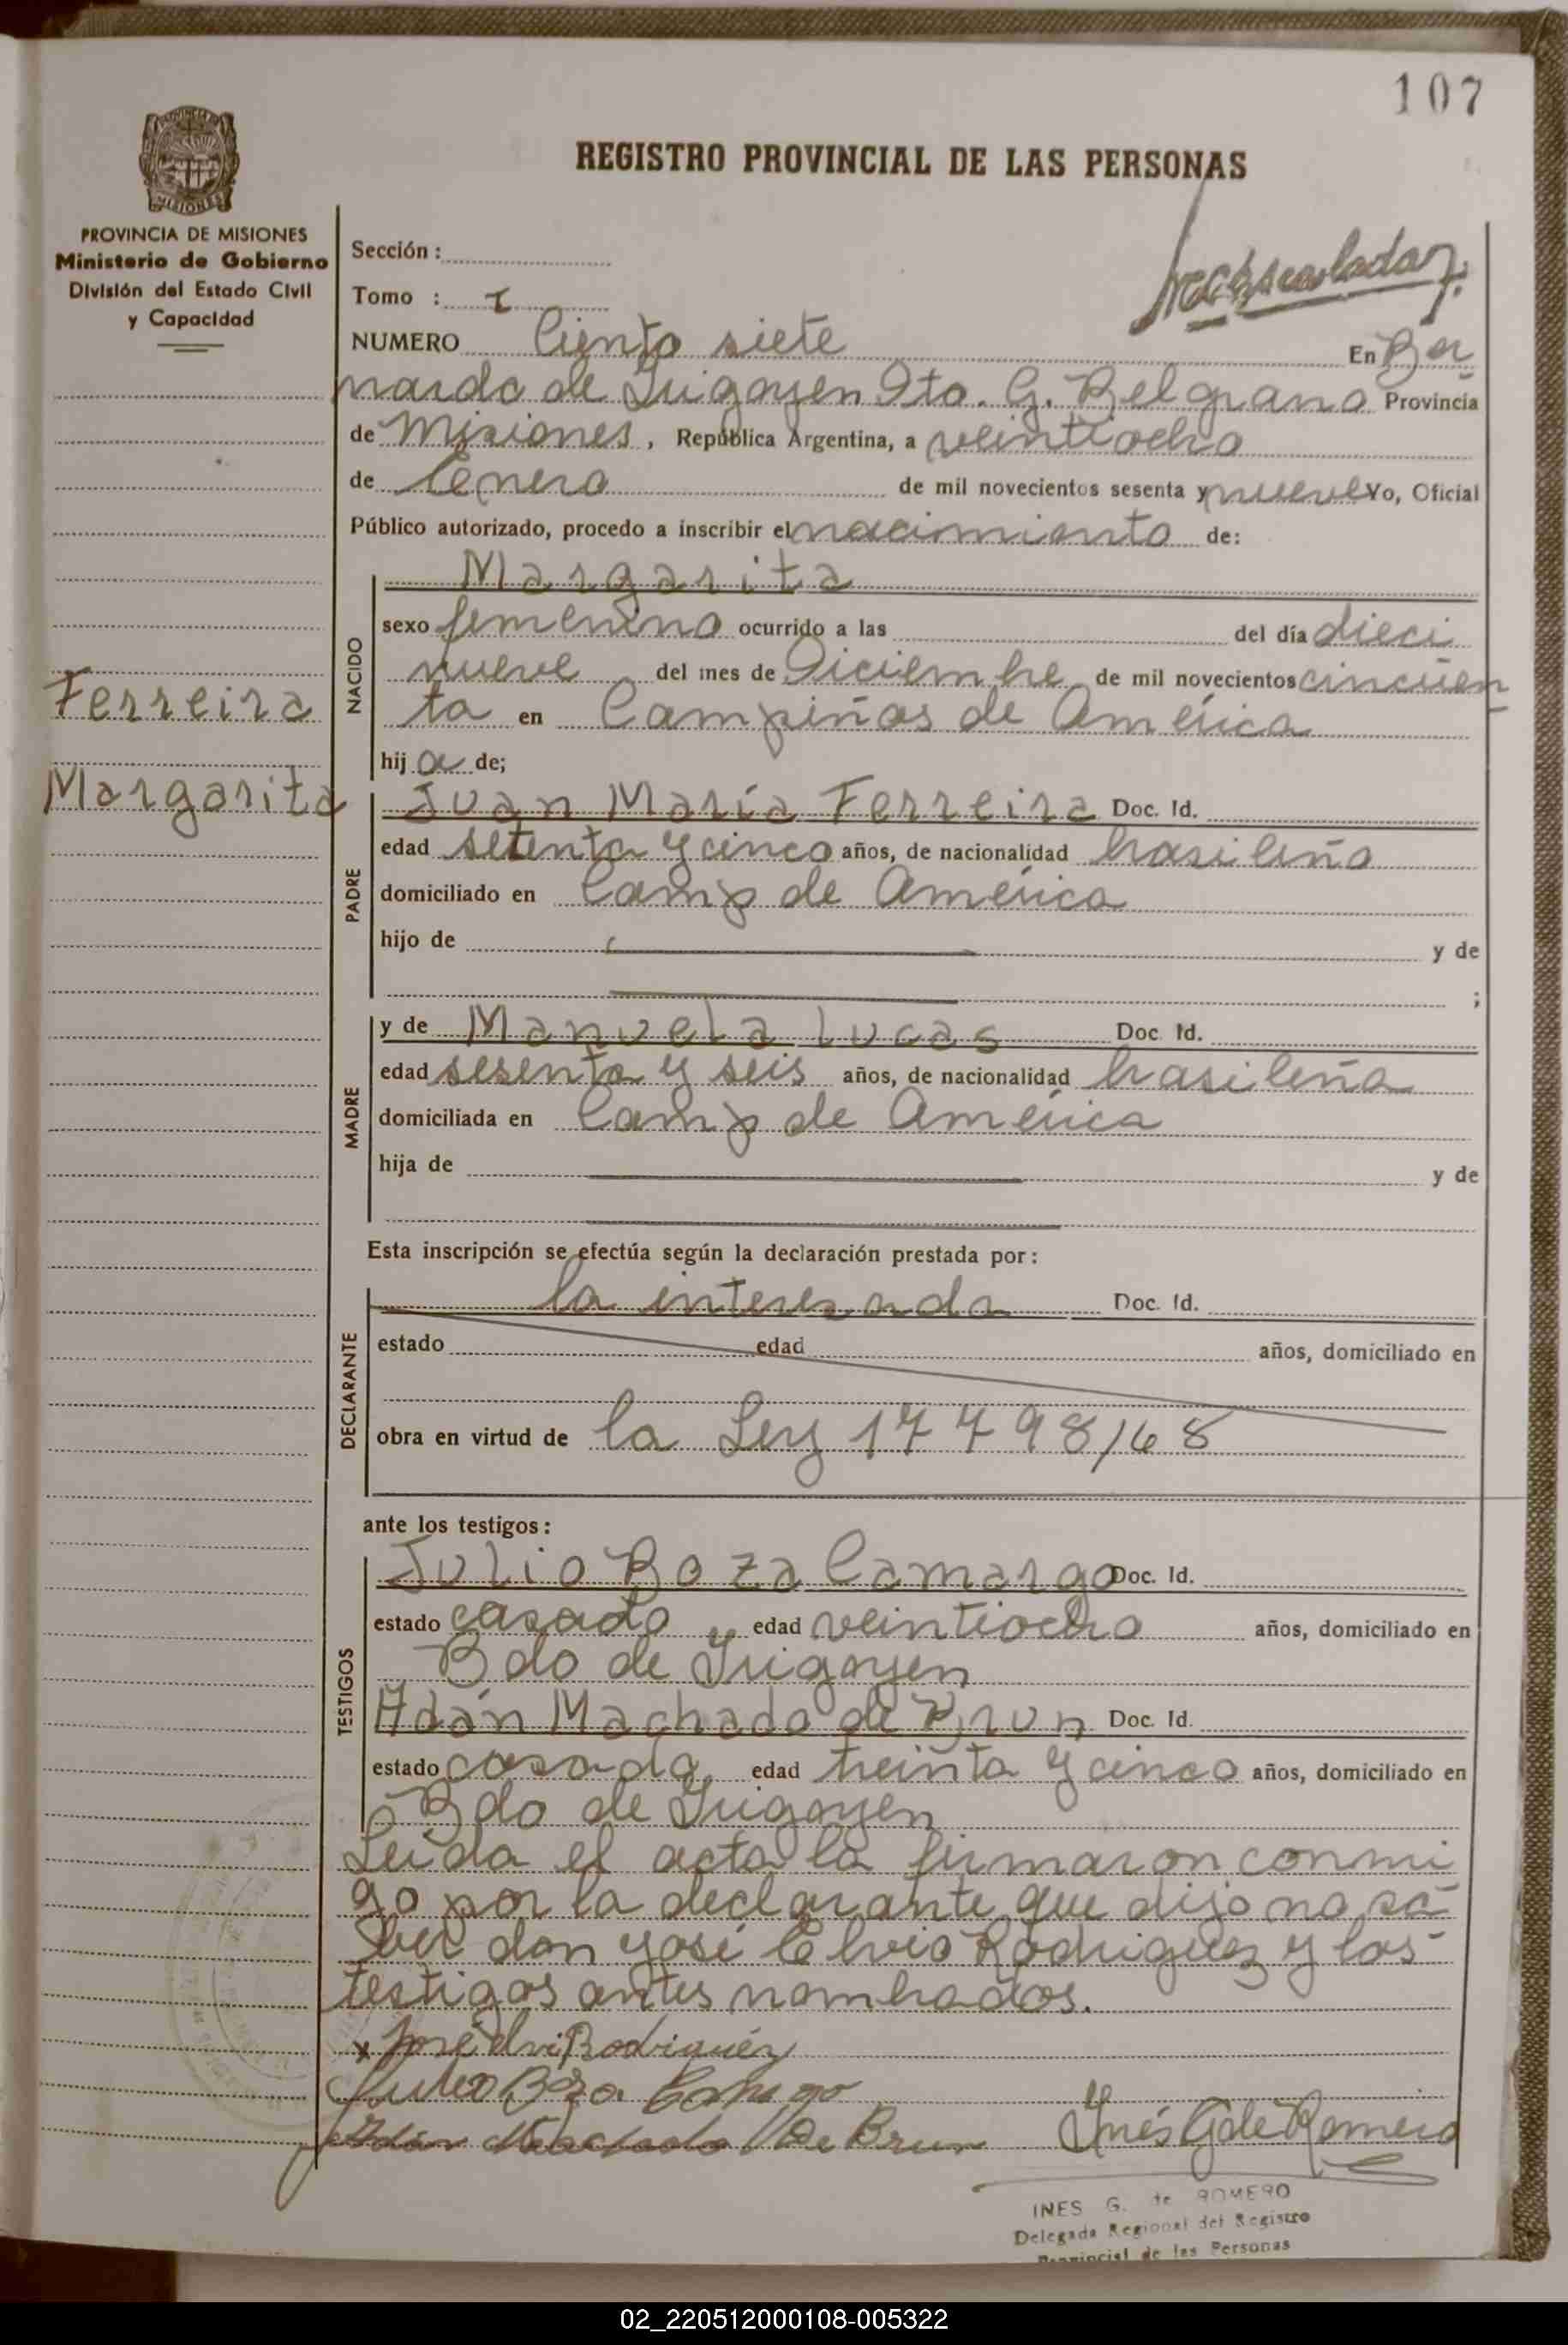 107
REGISTRO PROVINCIAL DE LAS PERSONAS
PROVINCIA DE MISIONES
Ministerio de Gobierno
División del Estado Civil
y Capacidad
Sección :
Tomo : I
NUMERO Ciento siete En Ber
nardo de Irigoyen Dto. G. Belgrano Provincia
de Misiones, República Argentina, a veintiocho
de Enero de mil novecientos sesenta y nueve Yo, Oficial
Público autorizado, procedo a inscribir el nacimiento de:
NACIDO
Margarita
sexo femenino ocurrido a las del día dieci
nueve del mes de Diciembre de mil novecientos cincuen
ta en Campiñas de América
hija de;
Ferreira
Margarita
PADRE
Juan María Ferreira Doc. Id.
edad setenta y cinco años, de nacionalidad brasileño
domiciliado en Camp de América
hijo de y de
;
MADRE
y de Manuela Lucas Doc. Id.
edad sesenta y seis años, de nacionalidad brasileña
domiciliada en Camp de América
hija de y de
Esta inscripción se efectúa según la declaración prestada por:
DECLARANTE
la interesada Doc. Id.
estado edad años, domiciliado en
obra en virtud de la Ley 17798/68
ante los testigos:
TESTIGOS
Julio Boza Camargo Doc. Id.
estado casado edad veintiocho años, domiciliado en
Bdo de Irigoyen
Adán Machado de Brun Doc. Id.
estado casado edad treinta y cinco años, domiciliado en
Bdo de Irigoyen
Leída el acta la firmaron conmi
go por la declarante que dijo no sa
ber don José Elvio Rodriguez y los
testigos antes nombrados.
x José Elvi Rodriguéz
Julio Boza Camargo
Adán Machado De Brun Inés G de Romero
INES G. de ROMERO
Delegada Regional del Registro
Provincial de las Personas
02_220512000108-005322